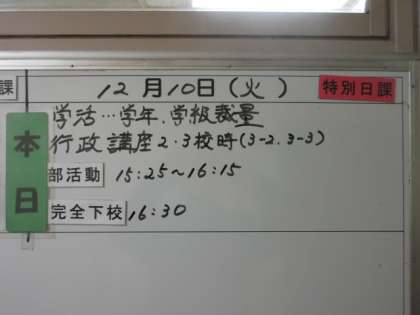 課 12月10日(火) 特別日課
学活…学年、学級裁量
本日
行政講座2・3校時(3-2、3-3)
部活動 15:25~16:15
完全下校 16:30